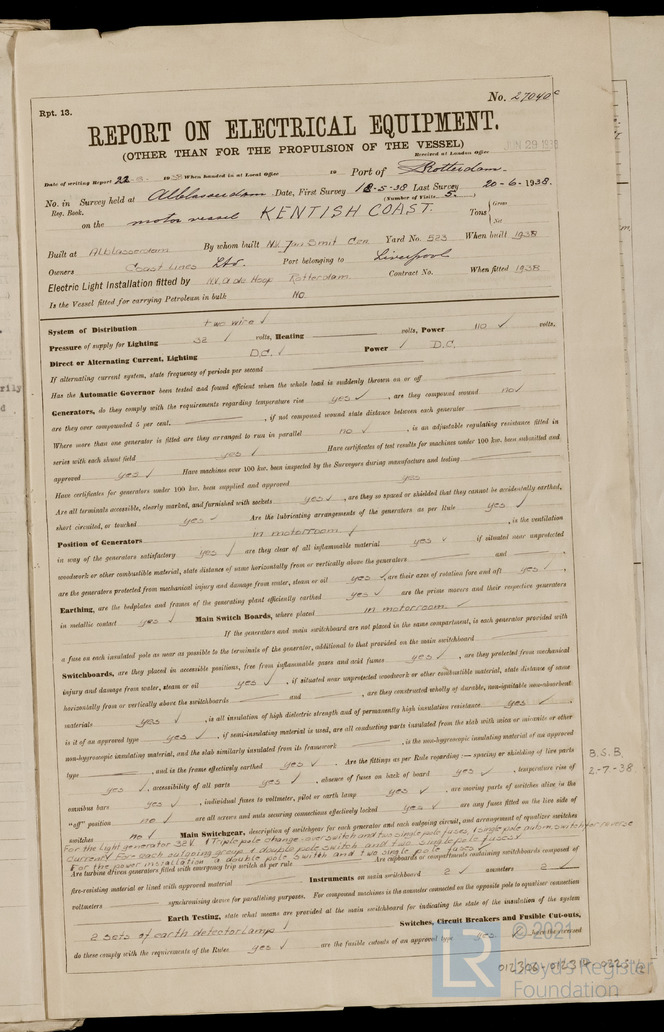 No. 27040c
Rpt. 13.
REPORT ON ELECTRICAL EQUIPMENT.
(OTHER THAN FOR THE PROPULSION OF THE VESSEL)
JUN 29 1938
Received at London Office
Date of writing Report 22 19 38 When handed in at Local Office 19 Port of Rotterdam.
No. in Survey held at Alblasserdam Date, First Survey 18-5-38 Last Survey 20-6-1938.
Reg. Book. (Number of Visits 5.)
on the motor vessel KENTISH COAST. Tons Gross Net
Built at Alblasserdam By whom built N.V. Jan Smit Czn Yard No. 523 When built 1938
Owners Coast Lines Ltd. Port belonging to Liverpool
Electric Light Installation fitted by N.V. Rotterdam Contract No. When fitted 1938
Is the Vessel fitted for carrying Petroleum in bulk NO
System of Distribution two wire ✓
Pressure of supply for Lighting 32 ✓ volts, Heating volts, Power 110 ✓ volts.
Direct or Alternating Current, Lighting D.C. ✓ Power ✓ D.C.
If alternating current system, state frequency of periods per second
Has the Automatic Governor been tested and found efficient when the whole load is suddenly thrown on or off
Generators, do they comply with the requirements regarding temperature rise yes ✓, are they compound wound no ✓
are they over compounded 5 per cent., if not compound wound state distance between each generator
Where more than one generator is fitted are they arranged to run in parallel no ✓, is an adjustable regulating resistance fitted in
series with each shunt field yes ✓ Have certificates of test results for machines under 100 kw. been submitted and
approved yes ✓ Have machines over 100 kw. been inspected by the Surveyors during manufacture and testing
Have certificates for generators under 100 kw. been supplied and approved yes
Are all terminals accessible, clearly marked, and furnished with sockets yes ✓, are they so spaced or shielded that they cannot be accidentally earthed,
short circuited, or touched yes ✓ Are the lubricating arrangements of the generators as per Rule yes ✓
Position of Generators in motorroom ✓, is the ventilation
in way of the generators satisfactory yes ✓ are they clear of all inflammable material yes ✓ if situated near unprotected
woodwork or other combustible material, state distance of same horizontally from or vertically above the generators and
are the generators protected from mechanical injury and damage from water, steam or oil yes ✓, are their axes of rotation fore and aft yes ✓
Earthing, are the bedplates and frames of the generating plant efficiently earthed yes ✓ are the prime movers and their respective generators
in metallic contact yes ✓ Main Switch Boards, where placed in motorroom ✓
If the generators and main switchboard are not placed in the same compartment, is each generator provided with
a fuse on each insulated pole as near as possible to the terminals of the generator, additional to that provided on the main switchboard
Switchboards, are they placed in accessible positions, free from inflammable gases and acid fumes yes ✓, are they protected from mechanical
injury and damage from water, steam or oil yes ✓, if situated near unprotected woodwork or other combustible material, state distance of same
horizontally from or vertically above the switchboards and, are they constructed wholly of durable, non-ignitable non-absorbent
materials yes ✓, is all insulation of high dielectric strength and of permanently high insulation resistance yes ✓
is it of an approved type yes ✓, if semi-insulating material is used, are all conducting parts insulated from the slab with mica or micanite or other
non-hygroscopic insulating material, and the slab similarly insulated from its framework, is the non-hygroscopic insulating material of an approved
type, and is the frame effectively earthed yes ✓. Are the fittings as per Rule regarding:— spacing or shielding of live parts
yes ✓, accessibility of all parts yes ✓, absence of fuses on back of board yes ✓, temperature rise of
B.S.B.
2-7-38.
omnibus bars yes ✓, individual fuses to voltmeter, pilot or earth lamp yes ✓, are moving parts of switches alive in the
"off" position no ✓ are all screws and nuts securing connections effectively locked yes ✓ are any fuses fitted on the live side of
switches no ✓ Main Switchgear, description of switchgear for each generator and each outgoing circuit, and arrangement of equalizer switches
For the light generator 32V. 1 Triple pole change-over switch and two single pole fuses, 1 single pole autom. switch for reverse
current. For each outgoing group 1 double pole switch and two single pole fuses.
For the power installation a double pole switch and two single pole fuses ✓
Are turbine driven generators fitted with emergency trip switch as per rule Are cupboards or compartments containing switchboards composed of
fire-resisting material or lined with approved material Instruments on main switchboard 2 ✓ ammeters 2 ✓
voltmeters synchronising device for paralleling purposes. For compound machines is the ammeter connected on the opposite pole to equaliser connection
Earth Testing, state what means are provided at the main switchboard for indicating the state of the insulation of the system
2 sets of earth detector lamp ✓ Switches, Circuit Breakers and Fusible Cut-outs,
do these comply with the requirements of the Rules yes ✓ are the fusible cutouts of an approved type yes ✓ have the reversed
© 2021
LR Lloyd's Register
Foundation